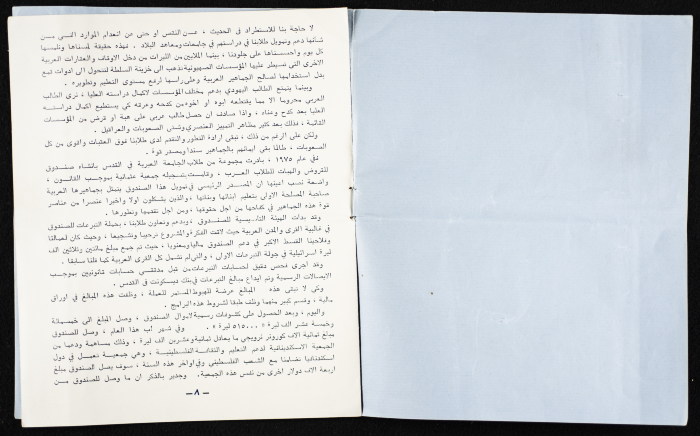 لا حاجة بنا للاستطراد في الحديث ، عن النقص او حتى عن انعدام الموارد التي من
شأنها دعم وتمويل طلابنا في دراستهم في جامعات ومعاهد البلاد . فهذه حقيقة لمسناها ونلمسها
كل يوم واحسسناها على جلودنا ، بينما الملايين من الليرات من دخل الاوقاف والعقارات العربية
الاخرى التي تسيطر عليها المؤسسات الصهيونية تذهب الى خزينة السلطة لتتحول الى ادوات قمع
بدل استخدامها لصالح الجماهير العربية وعلى رأسها لرفع مستوى التعليم وتطويره .
وبينما يتمتع الطالب اليهودي بدعم مختلف المؤسسات لاكمال دراسته العليا ، نرى الطالب
العربي محروما الا مما يقتطعه ابوه او اخوه من كدحه وعرقه كي يستطيع اكمال دراسته
العليا بعد كدح وعناء ، واذا صادف ان حصل طالب عربي على هبة او قرض من المؤسسات
القائمة ، فذلك بعد كثير مظاهر التمييز العنصري وشتى الصعوبات والعراقيل .
ولكن على الرغم من ذلك ، تبقى ارادة التطور والتقدم لدى طلابنا فوق العقبات واقوى من كل
الصعوبات ، طالما بقي ايمانهم بالجماهير سندا ومصدر قوة .
ففي عام ١٩٧٥ ، بادرت مجموعة من طلاب الجامعة العبرية في القدس بانشاء صندوق
للقروض والهبات للطلاب العرب ، وقامت بتسجيله جمعية عثمانية بموجب القانون ،
واضعة نصب اعينها ان المصدر الرئيسي في تمويل هذا الصندوق يتمثل بجماهيرها العربية
صاحبة المصلحة الاولى بتعليم ابنائها وبناتها ، والذين يشكلون اولا واخيرا عنصرا من عناصر
قوة هذه الجماهير في كفاحها من اجل حقوقها ، ومن اجل تقدمها وتطورها .
وقد بدأت الهيئة التأسيسية للصندوق ، وبدعم وتعاون طلابنا ، بحملة التبرعات للصندوق
في غالبية القرى والمدن العربية حيث لاقت الفكرة والمشروع ترحيبا وتشجيعا ، وحيث كان لعمالنا
وفلاحينا القسط الاكبر في دعم الصندوق ماليا ومعنويا ، حيث تم جمع مبلغ مائتين وثلاثين الف
ليرة اسرائيلية في جولة التبرعات الاولى ، والتي لم تشمل كل القرى العربية كما قلنا سابقا .
وقد اجري فحص دقيق لحسابات التبرعات من قبل مدققي حسابات قانونيين بموجب
الايصالات الرسمية وتم ايداع مبالغ التبرعات في بنك ديسكونت في القدس .
وكي لا تبقى هذه المبالغ عرضة للهبوط المستمر للعملة ، وظفت هذه المبالغ في اوراق
مالية ، وقسم كبير منها وظف طبقا لشروط هذه البرامج .
واليوم ، وبعد الحصول على كشوفات رسمية لاموال الصندوق ، وصل المبلغ الى خمسمائة
وخمسة عشر الف ليرة « ٥١٥٠٠٠ ليرة » . وفي شهر اب هذا العام ، وصل للصندوق
مبلغ ثمانية الاف كورونر نرويجي ما يعادل ثمانية وعشرين الف ليرة ، وذلك مساهمة ودعما من
الجمعية الاسكندينافية لدعم التعليم والثقافة الفلسطينية ، وهي جمعية تعمل في دول
اسكندنافيا تضامنا مع الشعب الفلسطيني وفي اواخر هذه السنة ، سوف يصل الصندوق مبلغ
اربعة الاف دولار اخرى من نفس هذه الجمعية . وجدير بالذكر ان ما وصل للصندوق من
— ٨ —